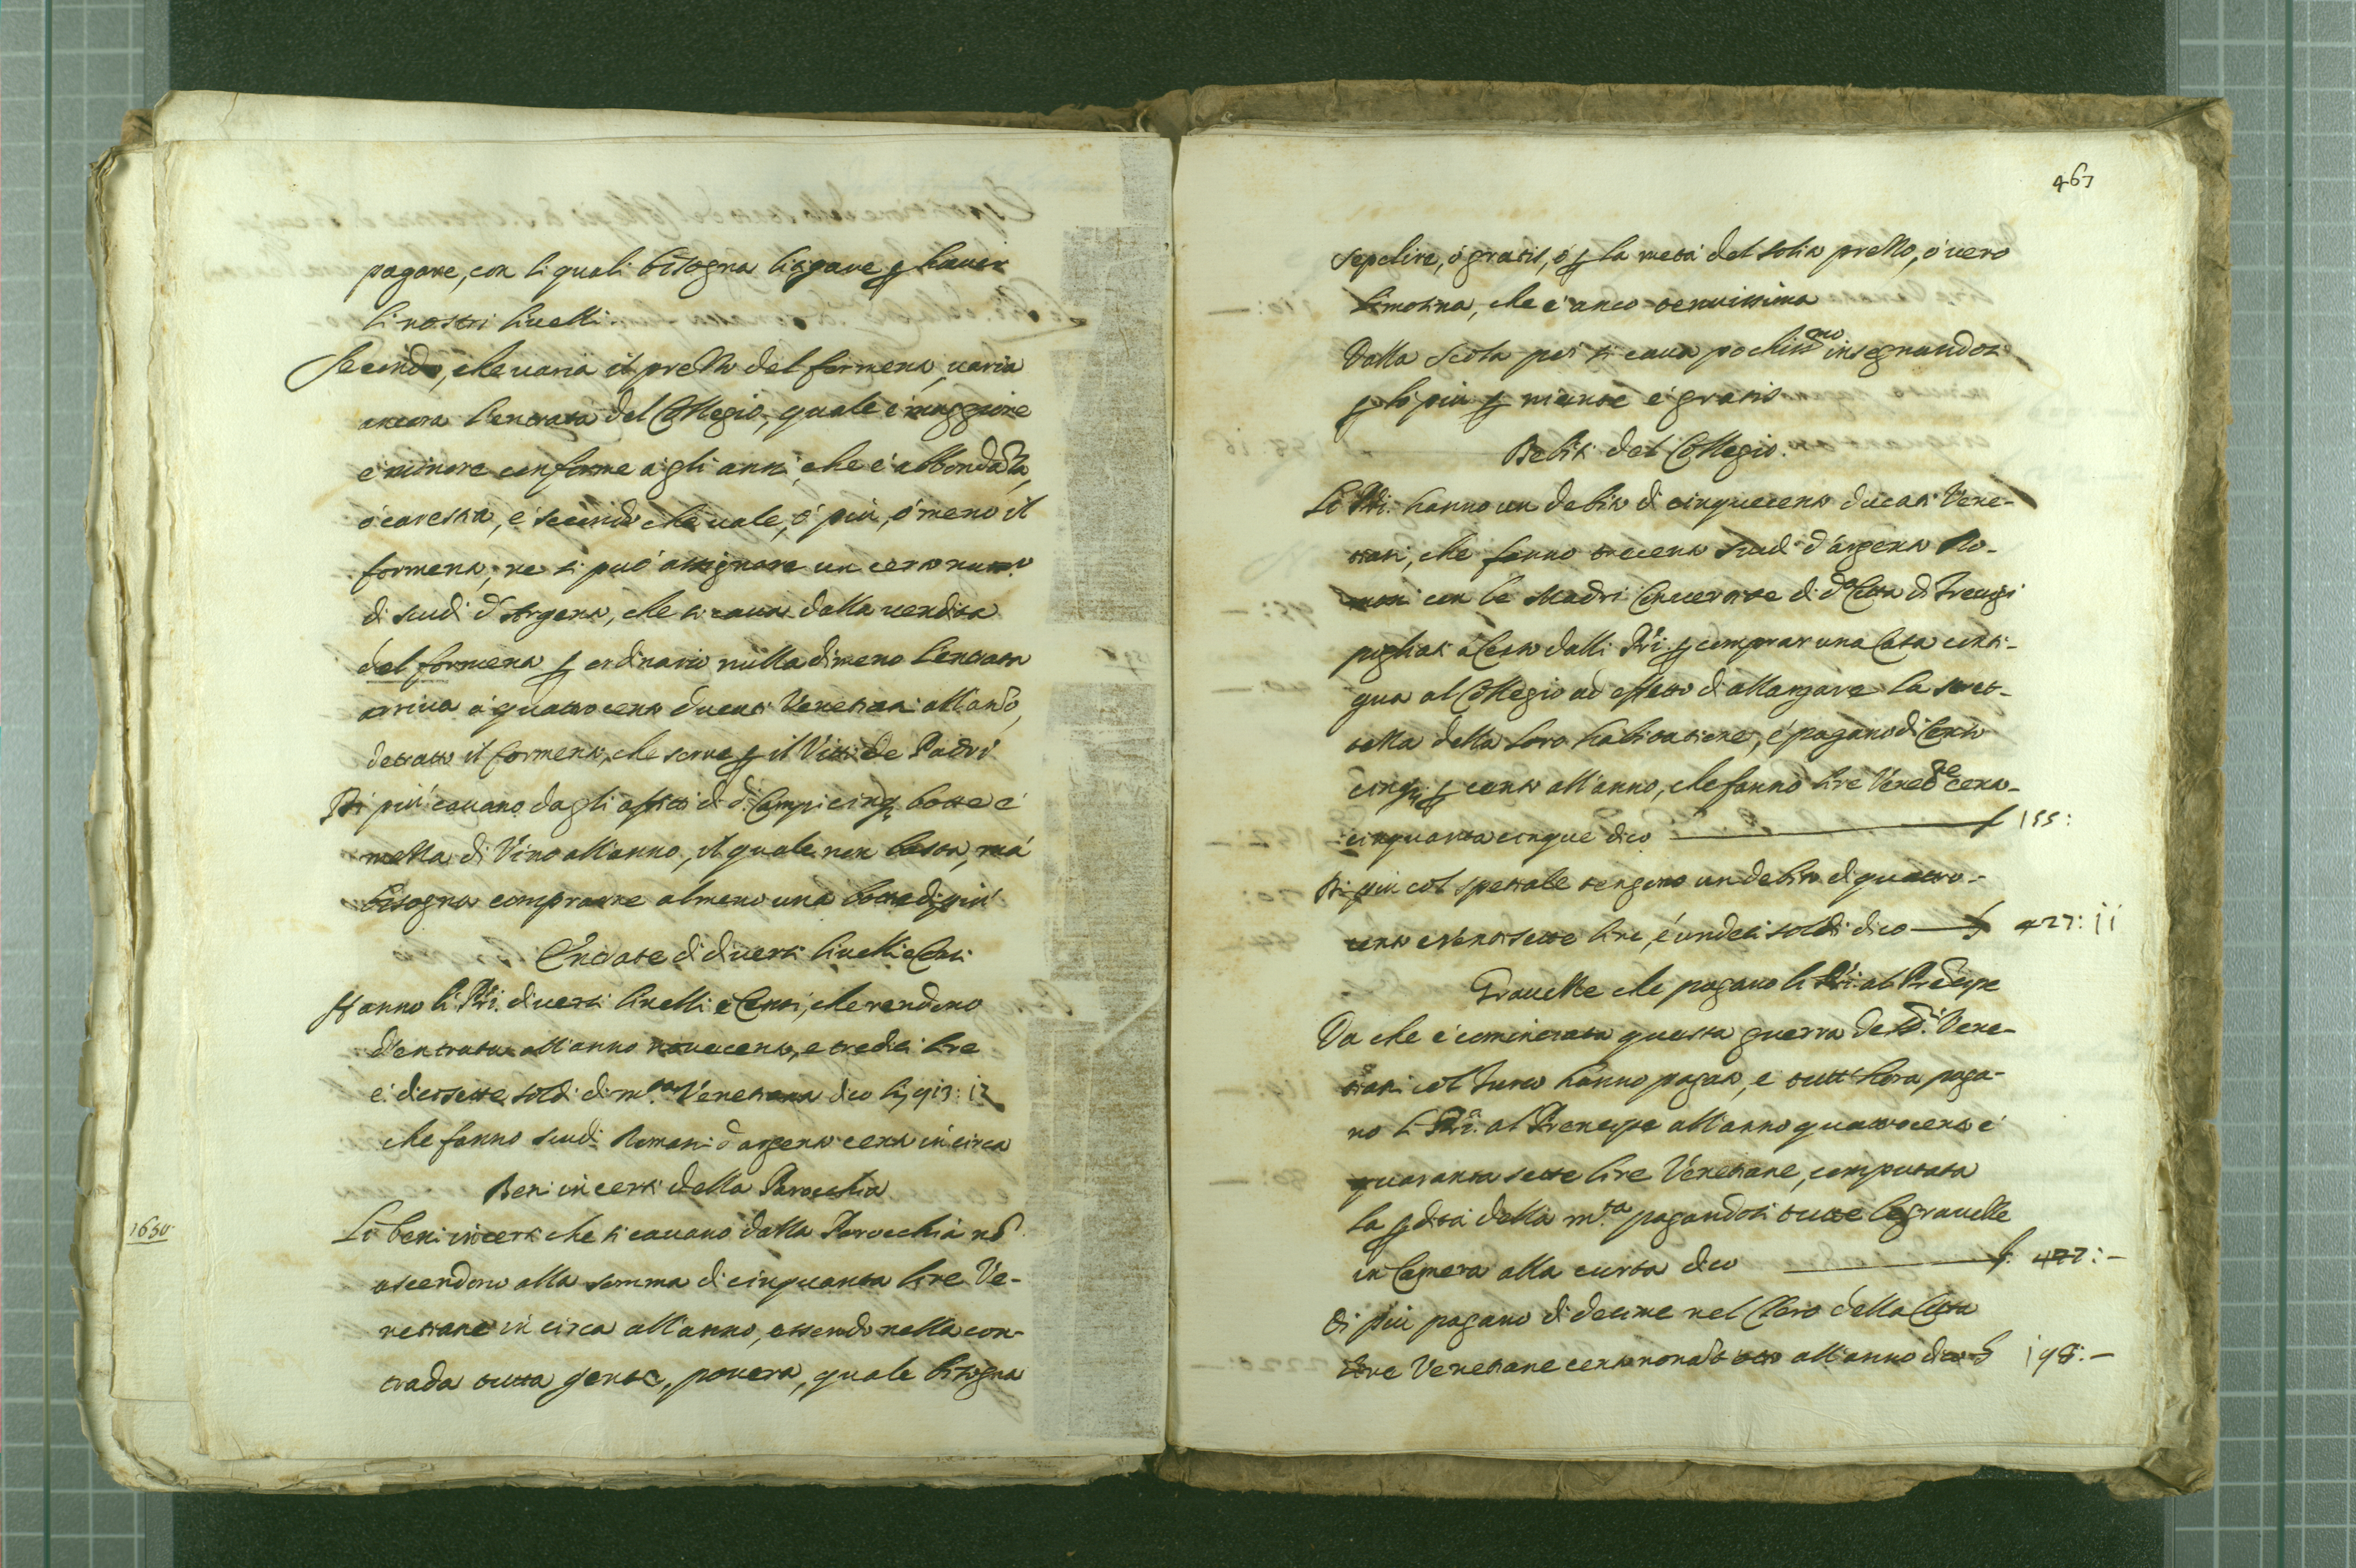 pagare, con li quali bisogna litigare ꝑ haver
li nostri livelli.
Secondo, che varia il prezzo del formento, varia
ancora l'entrata del Collegio, quale è maggiore
e minore conforme a gli anni, che è abbondāza,
ò carestia, e secondo che vale, ò più, ò meno il
formento, ne si può assignare un certo num.o
di scudi d'Argento, che si cava dalla vendita
del formento ꝑ ordinario nulladimeno l'entrata
arriva à quattrocento ducati Venetiani all'anō,
detratto il formento, che serve ꝑ il Vitto de Padri
Di più cavano dagli affitti di d.i Campi cinq; botte e
mezza di Vino all'anno, il quale non basta, mà
bisogna comprarne almeno una botte di più
Entrate di diversi livelli e Censi
Hanno li PP̃ri. diversi livelli e Censi, che rendono
d'entrata all'anno novecento, e tredici lire
e diecisette soldi di m.ta Venetiana dico L; 913: 17
che fanno scudi Romani d'argento cento in circa
Beni incerti della Parochia
1650
Li beni incerti che si cavano dalla Parochia nō
ascendono alla somma di cinquanta lire Ve-
netiane in circa all'anno, essendo nella con-
trada tutta gente, povera, quale bisogna
467
sepelire, ò gratis, ò ꝑ la metà del solito prezzo, ò vero
limosina, che è anco tenuissima
Dalla Scola poi si cava pochiss.mo insegnandosi
ꝑ lo più ꝑ niente è gratis
Debiti del Collegio.
Li PP̃ri. hanno un debito di cinquecento ducati Vene-
tiani, che fanno trecento scudi d'argento Ro-
mani con le Madri Convertite di d.a Città di Trevigi
pigliati à Censo dalli PP̃ri. ꝑ comprar una Casa conti-
gua al Collegio ad effetto di allargare la stret-
tezza della loro habitatione, e pagano di Censo
cinq; ꝑ cento all'anno, che fanno lire Venet.e cento-
cinquanta cinque dico L 155:
Di più col spetiale tengono un debito di quattro-
cento e ventisette lire, è undeci soldi dico L 427: 11
Gravezze che pagano li PP̃ri. al Prēcipe
Da che è cominciata questa guerra de SS.ri Vene-
tiani col Turco hanno pagato, e tutt'hora paga-
no li PP̃ri. al Prencipe all'anno quattrocento e
quaranta sette lire Venetiane, computata
la ꝑdita della m.ta pagandosi tutte le gravezze
in Camera alla curta dico L. 447:-
Di più pagano di decime nel Clero della Città
lire Venetiane cento nonāta otto all'anno dico L 198:-